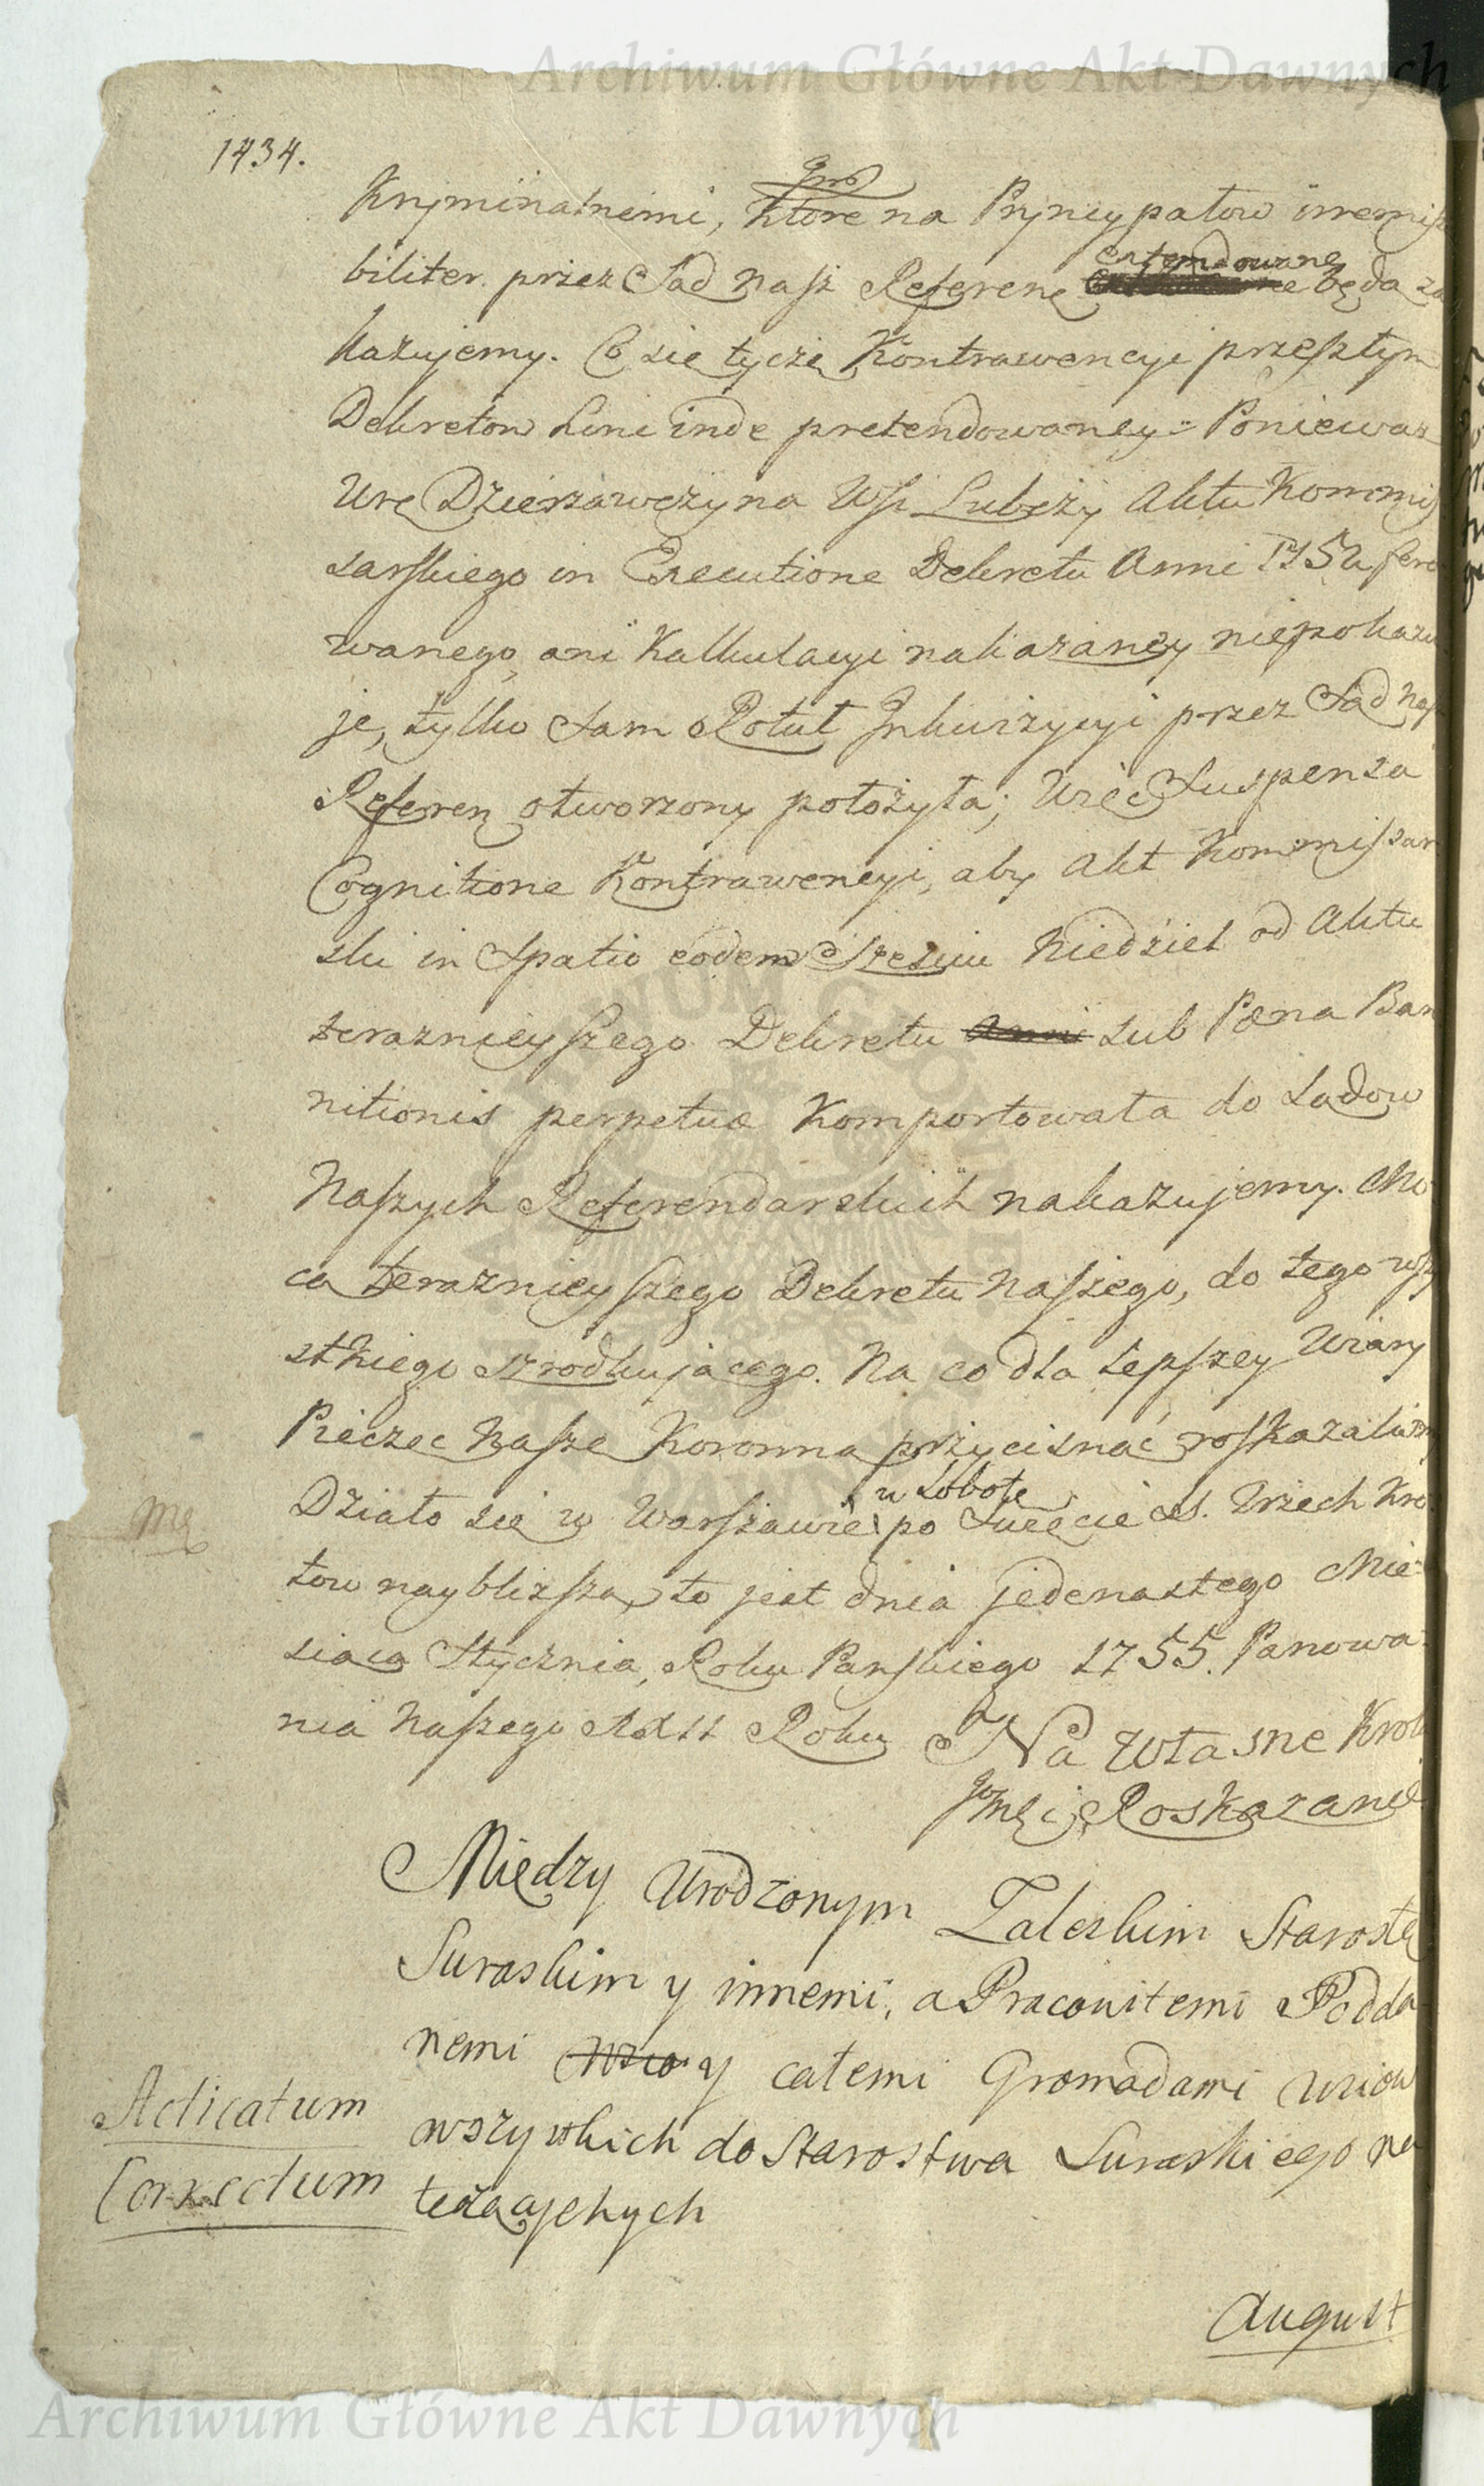 Archiwum Główne Akt Dawnych
1434.
Kryminalnemi, ktore na Pryncypałow irremiss
biliter przez Sąd Nasz Referen extendowane będą za
kazujemy. Co sie tycze Kontrawencyi przeszłym
Dekretow hinc inde pretendowaney: Poniewaz
Ure Dzierzawczyna Wsi Lubczy Aktu Kommis
sarskiego in Executione Dekretu Anni 1752 fero
wanego, ani Kalkulacyi nakazaney niepokazu
je, tylko Sam Rotuł Inkwizycyi przez Sąd Nasz
Referen otworzony połozyła; Więc Suspensa
Cognitione Kontrawencyi, aby Akt Kommissar
ski in Spatio eodem Szesciu Niedziel od Aktu
teraznieyszego Dekretu sub Pœna Ban
nitionis perpetuæ Komportowała do Sądow
Naszych Referendarskich nakazujemy. Mo
cą teraznieyszego Dekretu Naszego, do tego wszy
stkiego srzodkującego. Na co dla lepszey Wiary
Pieczęc Naszę Koronną przycisnąć roskazalism
w Sobotę
Działo się w Warszawie po Swięcie SS. Trzech Kro
Mę
low nayblizszą, to jest dnia jedenastego Mie
siąca Stycznia, Roku Panskiego 1755. Panowa
nia Naszego XXII Roku Na Własne Krol
Jmći Roskazanie
Między Urodzonym Zaleskim Starostą
Suraskim y innemi, a Pracowitemi Podda
nemi y całemi Gromadami Wsiow
wszystkich do Starostwa Suraskiego na
leżących
Acticatum
Correctum
August
Archiwum Główne Akt Dawnych